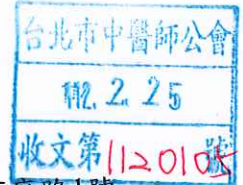 台北市中醫師公會
112. 2. 25
收文第1120105號
路1號